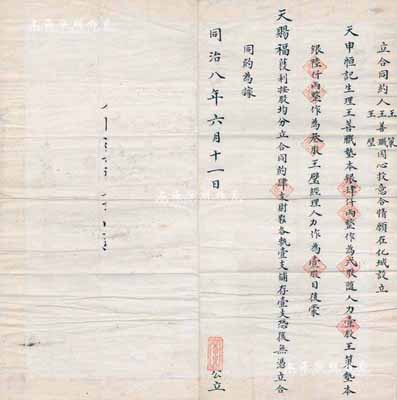 立合同約人王善職王策王壁因心投意合情願在化城設立
天申恒記生理王善職墊本銀肆仟兩整作為弍股隨人力壹股王策墊本
銀陸仟兩整作為叁股王壁經理人力作為壹股日後蒙
天賜福獲利按股均分立合同約肆支財東各執壹支鋪存壹支恐後無憑立合
同約為據
同治八年六月十一日
公立